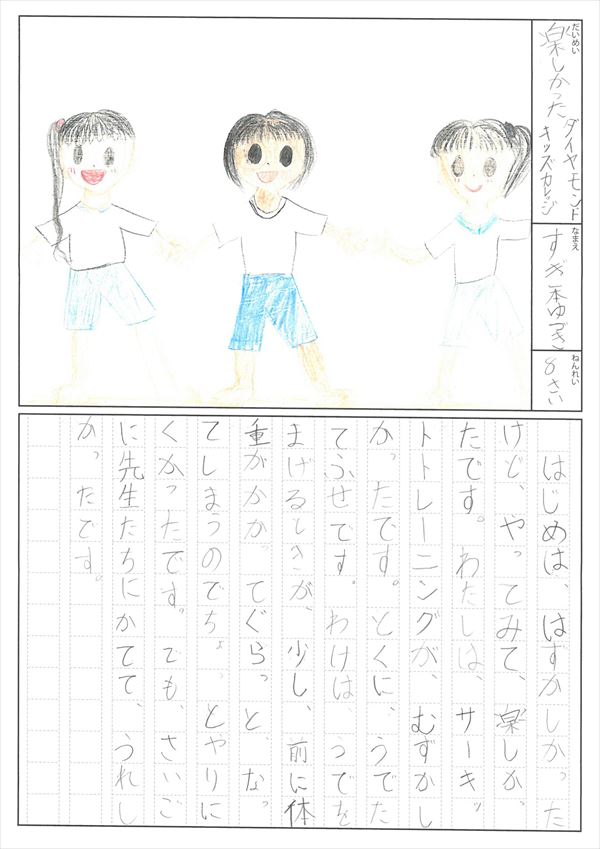 だいめい
楽しかった
ダイヤモンド
キッズカレッジ
なまえ
すぎ本ゆづき
ねんれい
8さい
はじめは、はずかしかった
けど、やってみて、楽しか、
たです。わたしは、サーキッ
トトレーニングが、むずかし
かったです。とくに、うでた
てふせです。わけは、うでを
まげるときが、少し、前に体
重がかかってぐらっと、なっ
てしまうのでちょっとやりに
くかったです。でも、さいご
に先生たちにかてて、うれし
かったです。